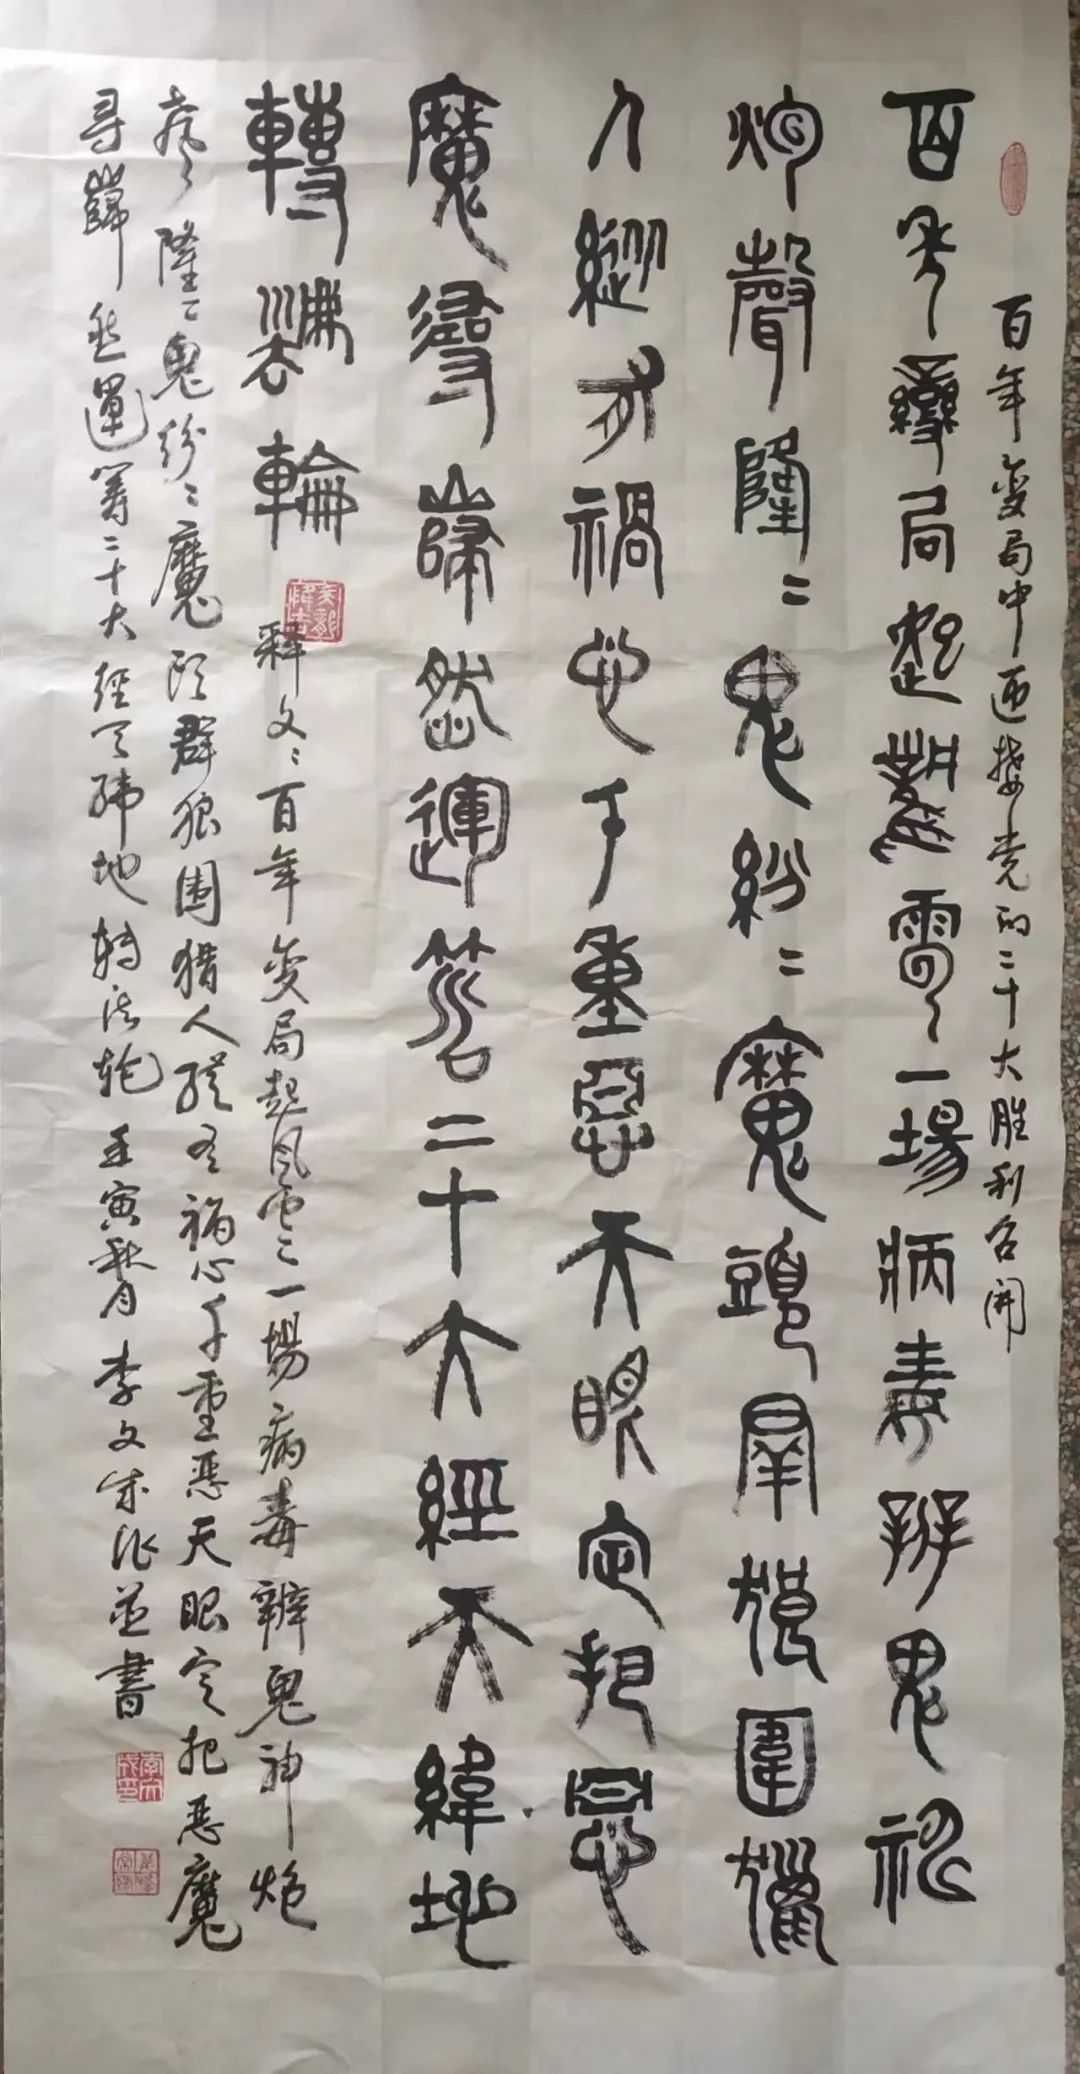 百年变局中迎接党的二十大胜利召开
百年變局起風雲一場病毒辨鬼神
炮聲隆二鬼紛二魔頭群狼圍獵
人縱有禍心千重惡天眼定把惡
魔尋巋然運籌二十大經天緯地
轉灋輪
释文二百年变局起风云二一場病毒辨鬼神炮
声隆二鬼纷二魔头群狼围猎人纵有祸心千重恶天眼定把恶魔
寻巋然運筹二十大经天纬地转法轮壬寅秋月李文成作并書